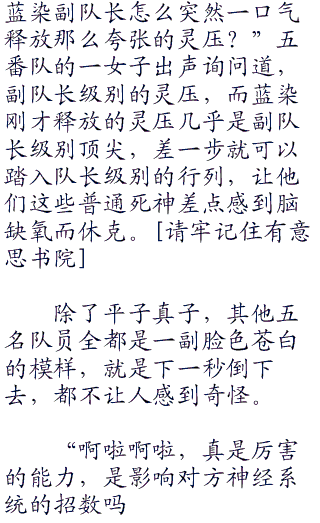 蓝染副队长怎么突然一口气
释放那么夸张的灵压？”五
番队的一女子出声询问道，
副队长级别的灵压，而蓝染
刚才释放的灵压几乎是副队
长级别顶尖，差一步就可以
踏入队长级别的行列，让他
们这些普通死神差点感到脑
缺氧而休克。[请牢记住有意
思书院]
除了平子真子，其他五
名队员全都是一副脸色苍白
的模样，就是下一秒倒下
去，都不让人感到奇怪。
“啊啦啊啦，真是厉害
的能力，是影响对方神经系
统的招数吗